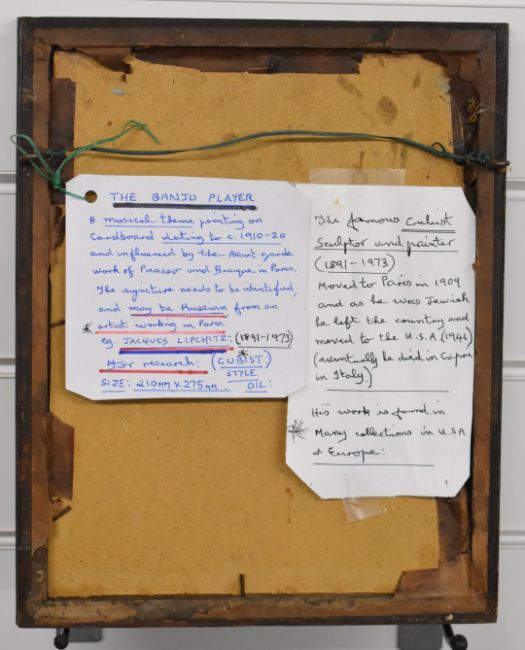 THE BANJO PLAYER
A musical theme painting on
Cardboard dating to c. 1910-20
and influenced by the Avant-garde
work of Picasso and Braque in Paris.
The signature needs to be identified,
and may be Russian from an
* artist working in Paris
eg. JACQUES LIPCHITZ: (1891-1973)
for research: (CUBIST) *
STYLE
SIZE: 210mm, X 275mm. OIL:
The famous Cubist
Sculptor and painter
(1891-1973)
Moved to Paris in 1909
and as he was Jewish
he left the country and
moved to the U.S.A (1941)
(eventually he died in Capri
in Italy.)
His work is found in
* Many collections in U.S.A
& Europe: